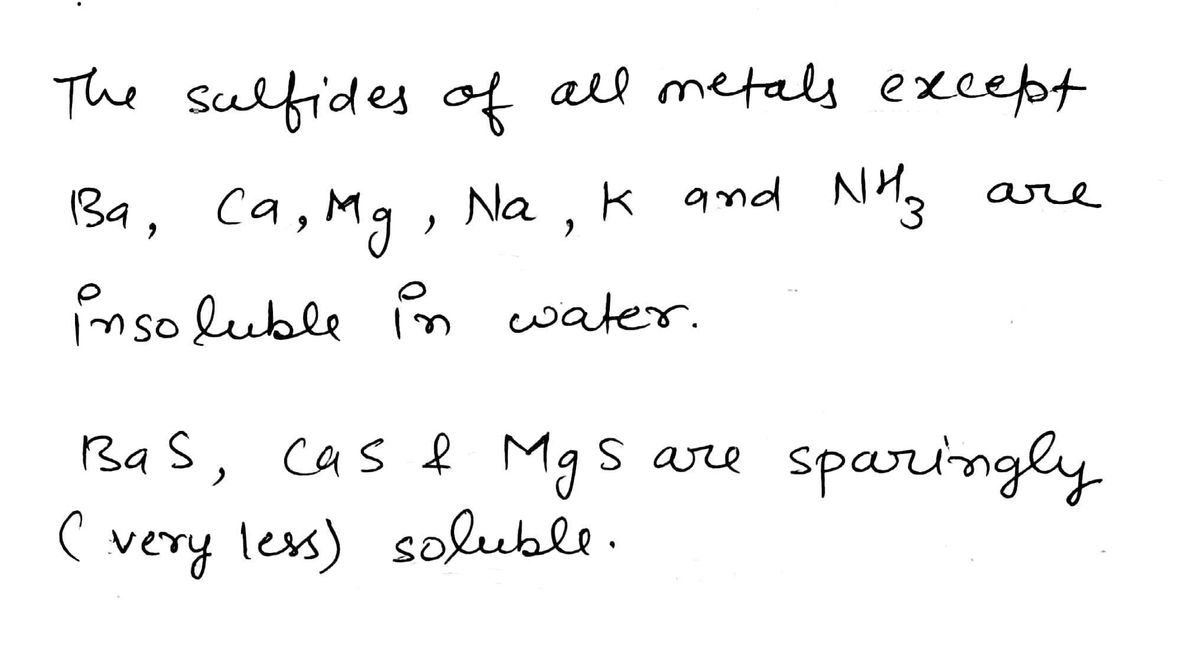 The sulfides of all metals except
Ba, Ca, Mg, Na, K and NH3 are
insoluble in water.
BaS, CaS & MgS are sparingly
(very less) soluble.